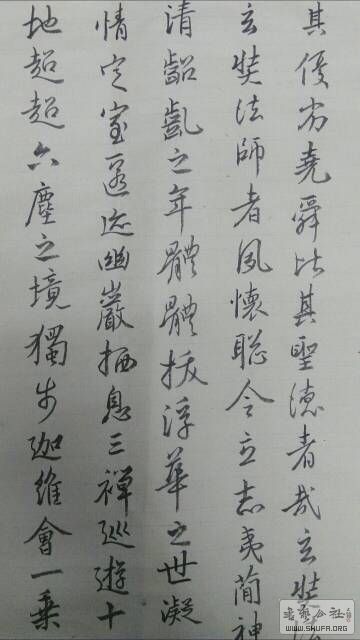 其優劣堯舜比其聖德者哉玄奘
玄奘法師者夙懷聰令立志夷簡神
清齠齔之年體體拔浮華之世凝
情定室匿迹幽巖栖息三禪巡遊十
地超超六塵之境獨步迦維會一乘
書藝公社
WWW.SHUFA.ORG